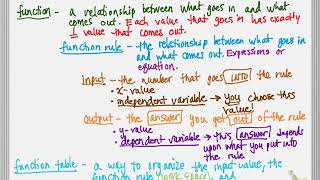 function - a relationship between what goes in and what
comes out. Each value that goes in has exactly
1 value that comes out.
function rule - the relationship between what goes in
and what comes out. Expressions or
equation.
Input - the number that goes into the rule
• x-value
• independent variable → you choose this
value!
Output - the answer you get out of the rule
• y-value
• dependent variable → this answer depends
upon what you put into
the rule
function table - a way to organize the input value, the
function rule (work space), and